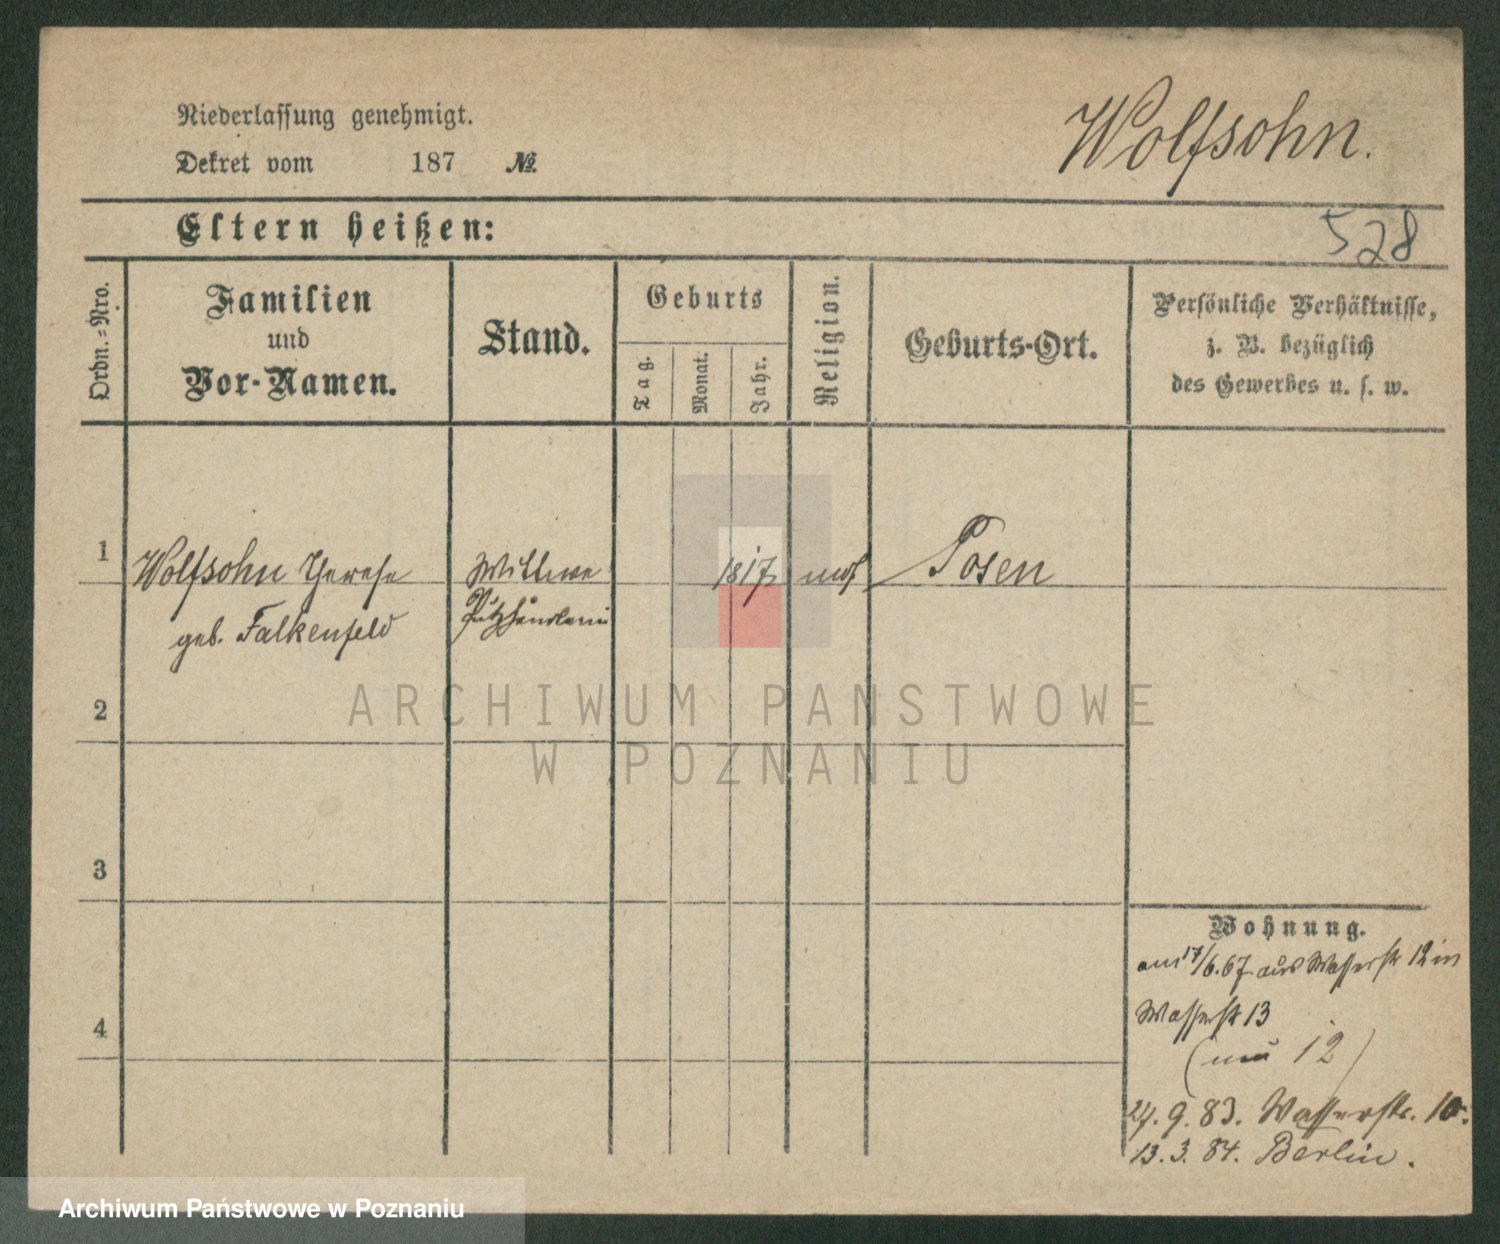 Niederlassung genehmigt.
Wolfsohn.
Dekret vom 187 №
Eltern heißen:
528
Ordn.=Nro.
Familien
und
Vor-Namen.
Stand.
Geburts
Tag.
Monat.
Jahr.
Religion.
Geburts-Ort.
Persönliche Verhältnisse,
z. B. bezüglich
des Gewerbes u. s. w.
1
Wolfsohn Therese
geb. Falkenfeld
Wittwe
Putzhändlerin
1817
mos.
Posen
2
3
4
Wohnung.
am 17/6.67 aus Wasserstr 12 in
Wasserstr 13
(neu 12)
27. 9. 83. Wasserstr. 10.
13. 3. 84. Berlin.
ARCHIWUM PAŃSTWOWE
W POZNANIU
Archiwum Państwowe w Poznaniu